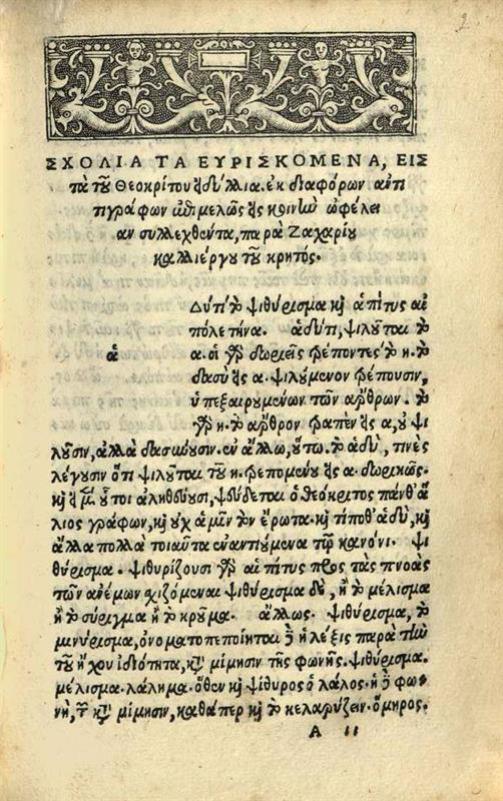 2
ΣΧΟΛΙΑ ΤΑ ΕΥΡΙΣΚΟΜΕΝΑ, ΕΙΣ
τὰ τοῦ Θεοκρίτου ἡδύλλια. ἐκ διαφόρων ἀντι
τιγράφων ἐπιμελῶς εἰς κοινὴν ὠφέλει
αν συλλεχθέντα, παρὰ Ζαχαρίου
καλλιέργου τοῦ κρητός.
Δύ τι τὸ ψιθύρισμα καὶ ἁ πίτυς αἰ
πόλε τήνα. ἁδύ τι, ψιλοῦται τὸ
ἁ
α. οἱ γὰρ δωριεῖς τρέποντες τὸ η. τὸ
δασὺ εἰς α. ψιλούμενον τρέπουσιν,
ὑπεξαιρουμένων τῶν ἄρθρων. τὸ
γὰρ η. τὸ ἄρθρον τραπὲν εἰς α, οὐ ψι
λοῦσιν, ἀλλὰ δασύνουσιν. ἐν ἄλλω, οὕτω. τὸ ἁδὺ, τινὲς
λέγουσιν ὅτι ψιλοῦται τοῦ η. τρεπομένου εἰς α. δωρικῶς.
καὶ εἰ μὲν οὗτοι ἀληθεύουσι, ψεύδεται ὁ θεόκριτος πάνθ' ἅ
λιος γράφων, καὶ οὐχ ἁμῖν τὸν ἔρωτα. καὶ τί ποθ' ἁδὺ, καὶ
ἄλλα πολλὰ τοιαῦτα ἐναντιούμενα τῷ κανόνι. ψι
θύρισμα. ψιθυρίζουσι γὰρ αἱ πίτυς πρὸς τὰς πνοὰς
τῶν ἀνέμων σχιζόμεναι ψιθύρισμα δὲ, ἢ τὸ μέλισμα
ἢ τὸ σύριγμα ἢ τὸ κροῦμα. ἄλλως. ψιθύρισμα, τὸ
μινύρισμα, ὀνοματοπεποίηται δὲ ἡ λέξις παρὰ τὴν
τοῦ ἤχου ἰδιότητα, κατὰ μίμησιν τῆς φωνῆς. ψιθύρισμα.
μέλισμα. λάλημα. ὅθεν καὶ ψίθυρος ὁ λάλος. ἡ δὲ φω-
νὴ, κατὰ μίμησιν, καθάπερ καὶ τὸ κελαρύζειν. ὅμηρος.
Α ιι